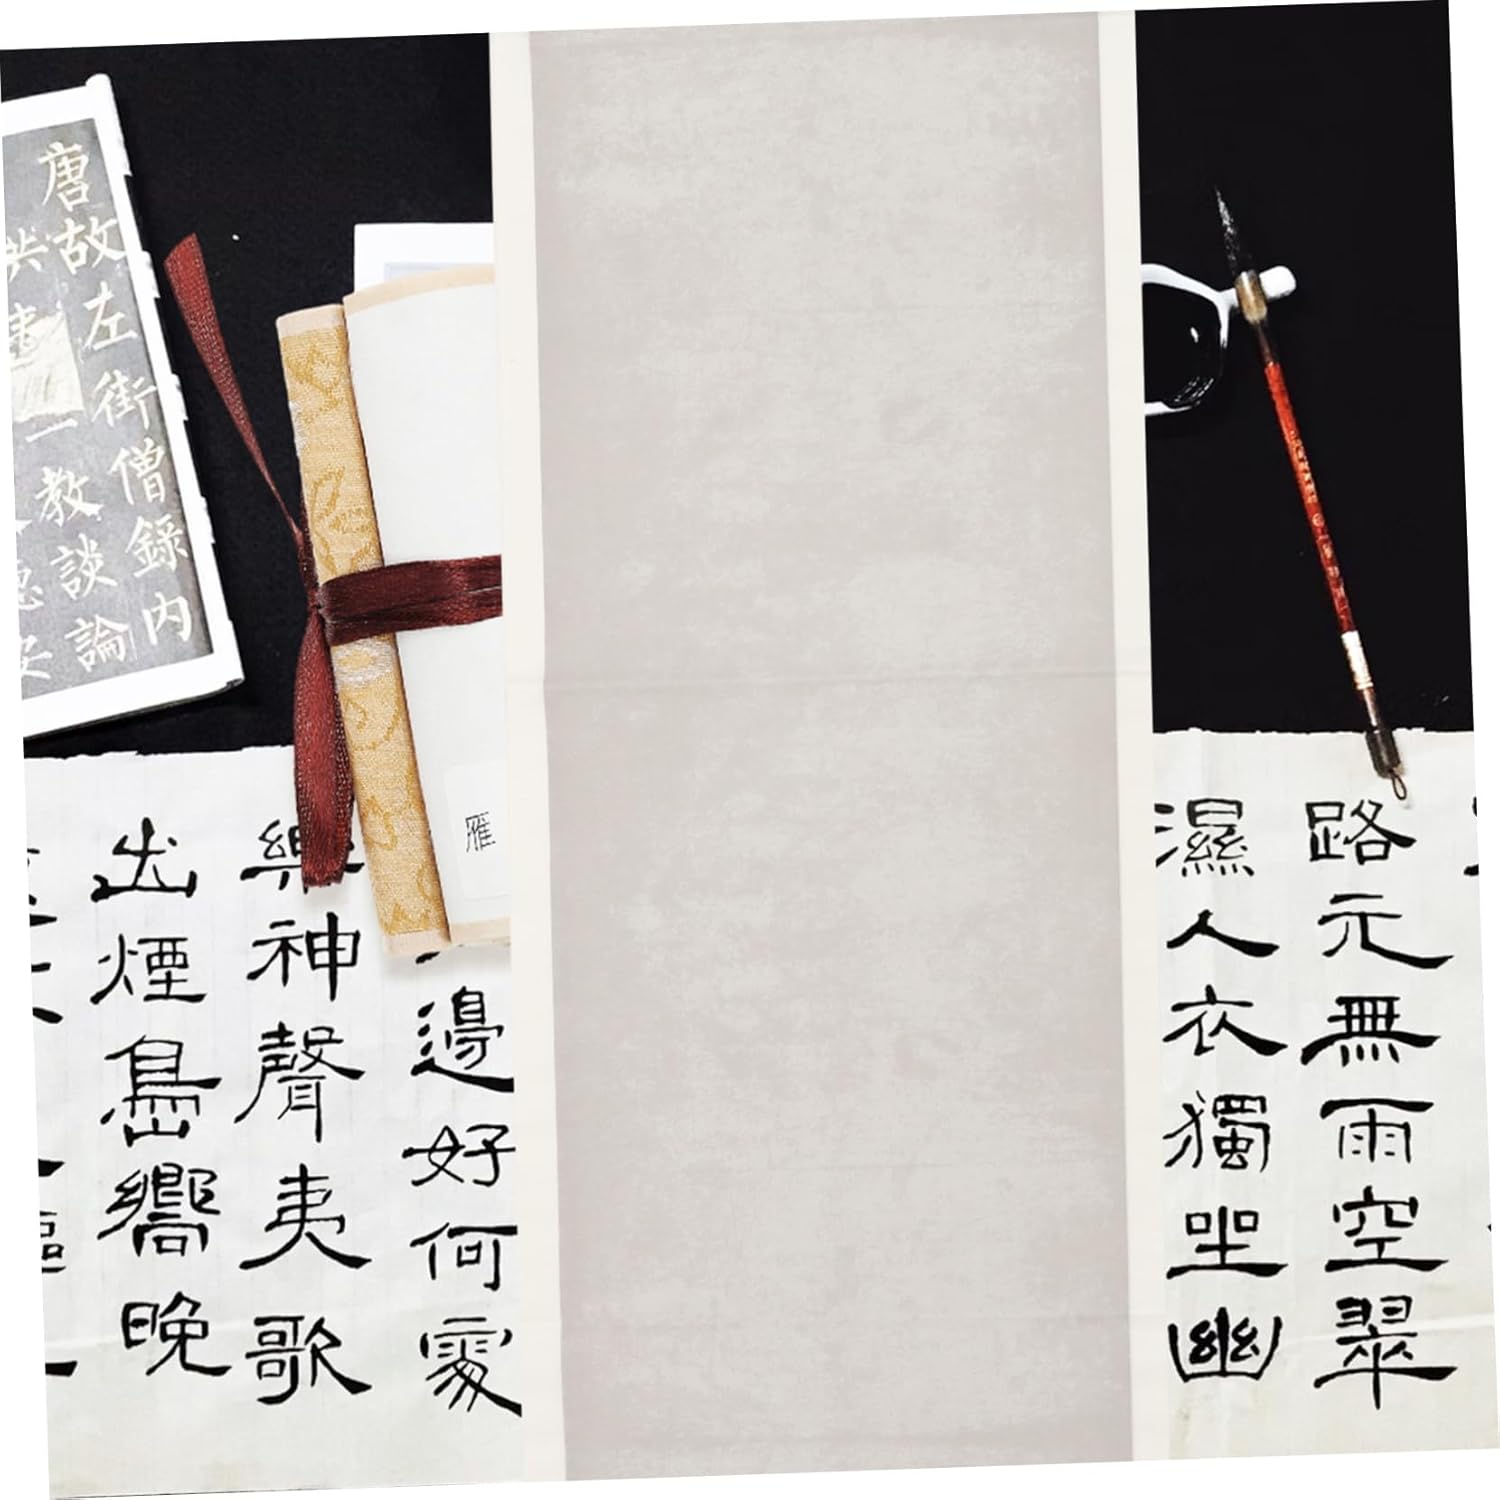 路元無雨空翠
濕人衣獨坐幽
邊好何處
樂神聲夷歌
出煙島嚮晚
雁
唐故左街僧錄內
教談論
安